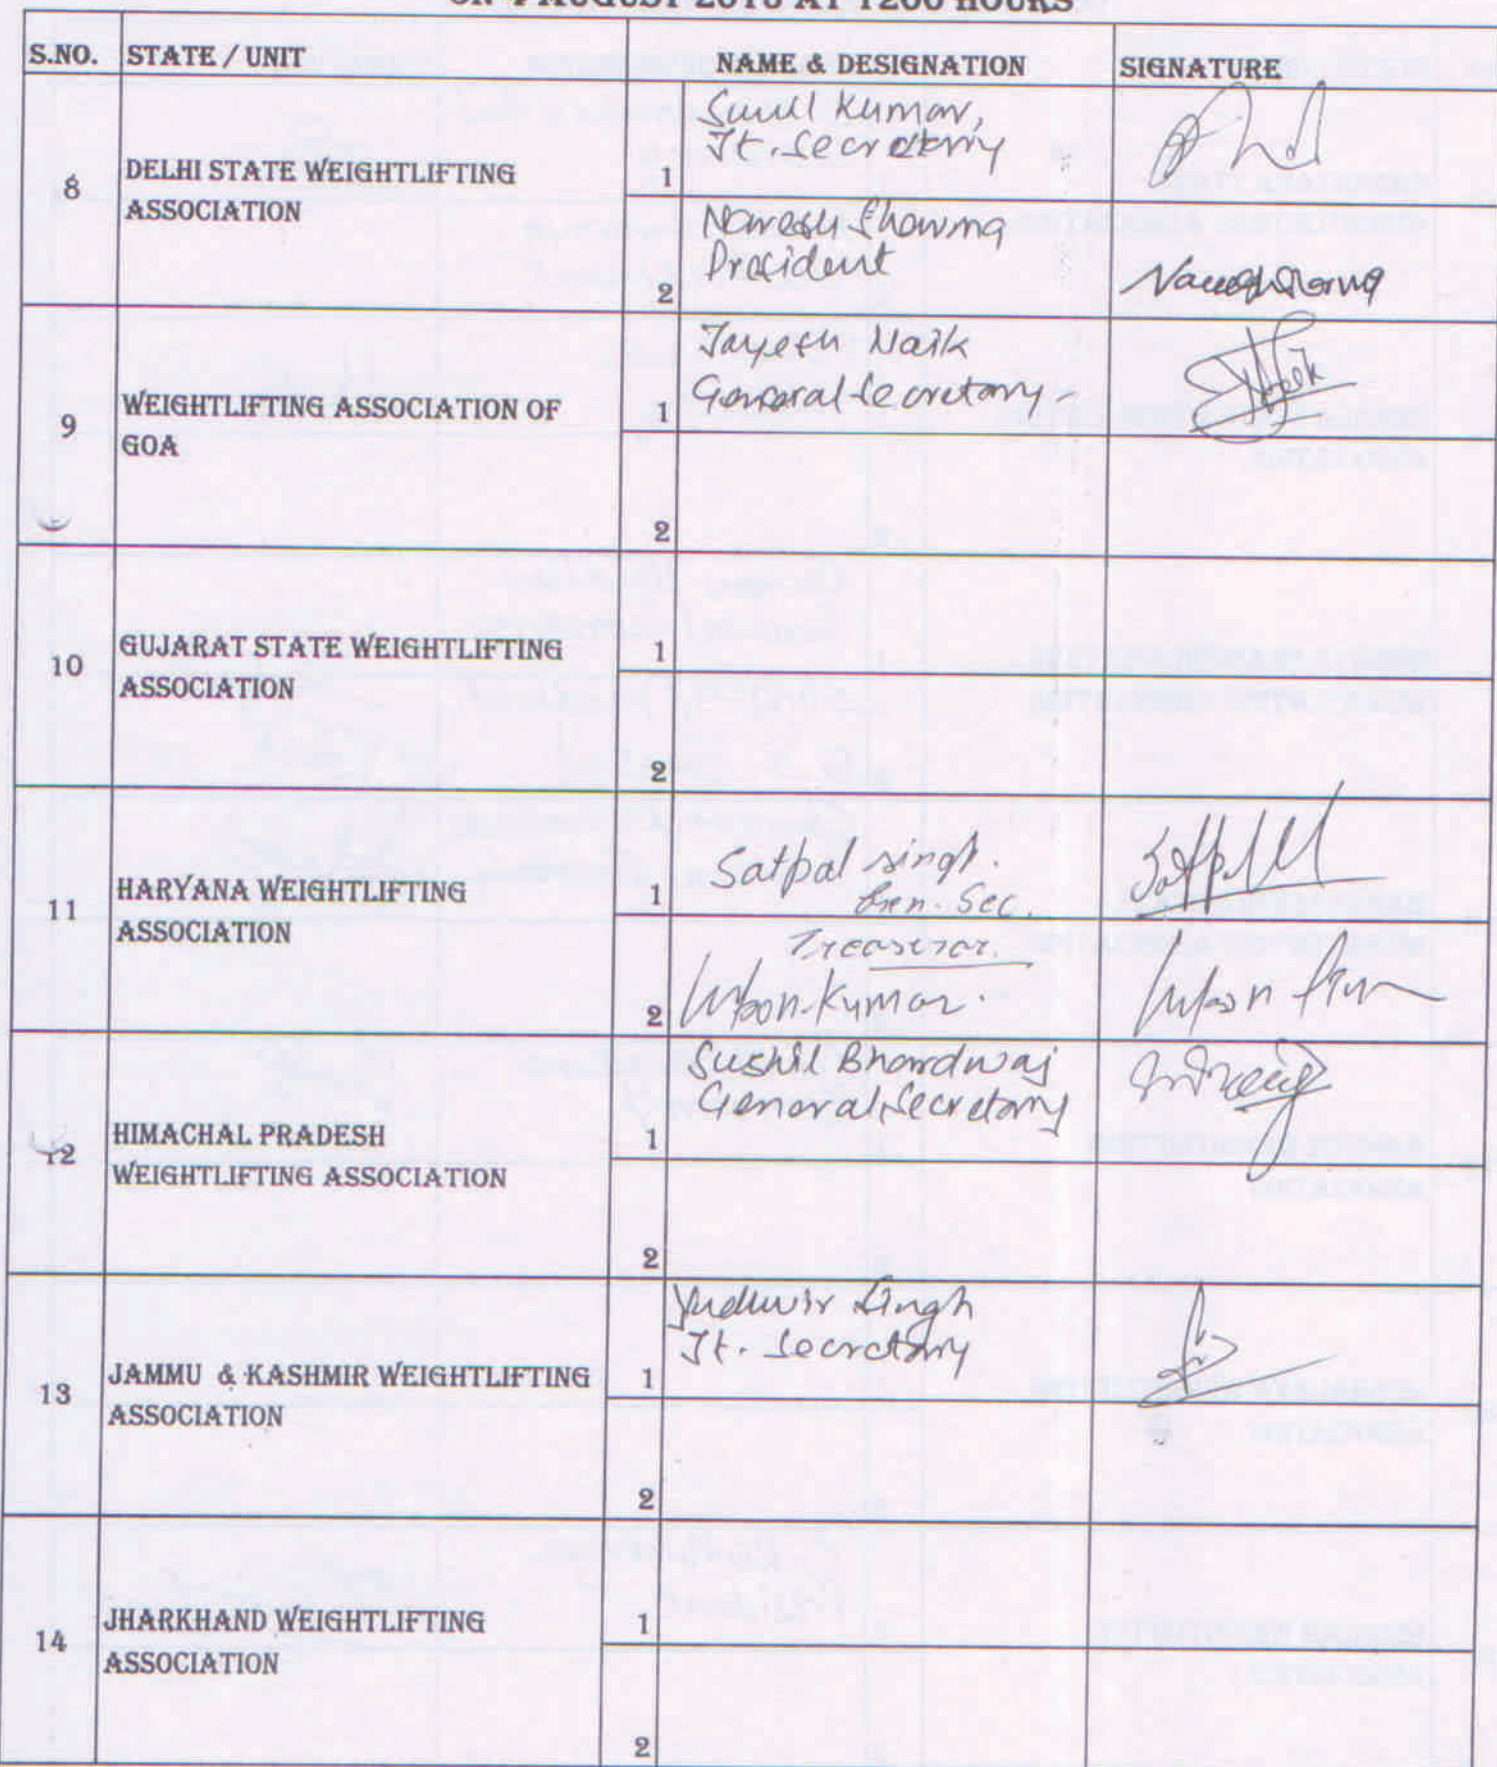 S.NO. STATE / UNIT NAME & DESIGNATION SIGNATURE
8 DELHI STATE WEIGHTLIFTING ASSOCIATION
1 Sunil Kumar,
Jt. Secretary
2 Naresh Sharma
President
Naresh Sharma
9 WEIGHTLIFTING ASSOCIATION OF
GOA
1 Jayesh Naik
General Secretary
2
10 GUJARAT STATE WEIGHTLIFTING
ASSOCIATION
1
2
11 HARYANA WEIGHTLIFTING
ASSOCIATION
1 Satpal singh.
Gen. Sec.
Treasurer.
2 Kumar.
12 HIMACHAL PRADESH
WEIGHTLIFTING ASSOCIATION
1 Sushil Bhardwaj
General Secretary
2
13 JAMMU & KASHMIR WEIGHTLIFTING
ASSOCIATION
1 Singh
Jt. Secretary
2
14 JHARKHAND WEIGHTLIFTING
ASSOCIATION
1
2